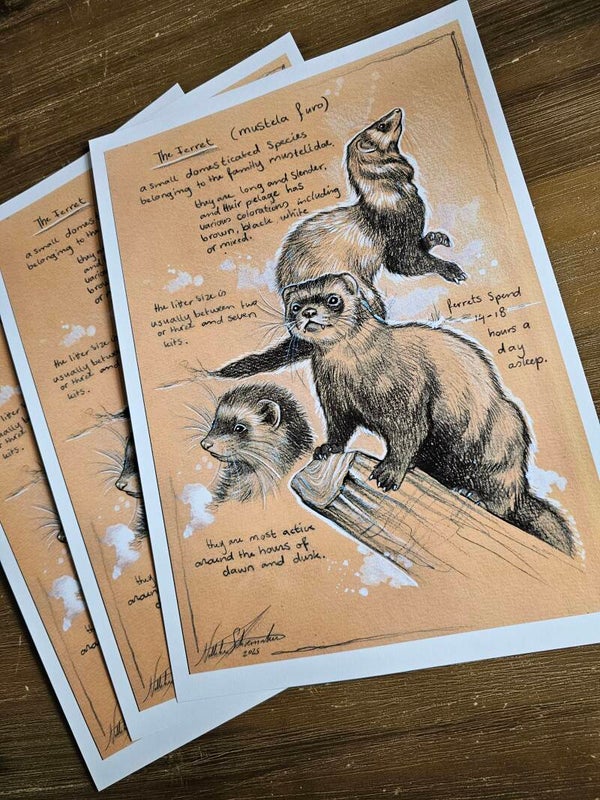 The Ferret (mustela furo)
a small domesticated species
belonging to the family mustelidae,
they are long and slender,
and their pelage has
various colorations including
brown, black, white
or mixed.
the liter size is
usually between two
or three and seven
kits.
ferrets spend
14-18
hours a
day
asleep.
they are most active
around the hours of
dawn and dusk.
2025
The Ferret
a small domes
belonging to th
they a
and
vario
br
or
the liter size is
usually betwee
or three and
kits.
they
aroun
the liter
usually
or three
kits.